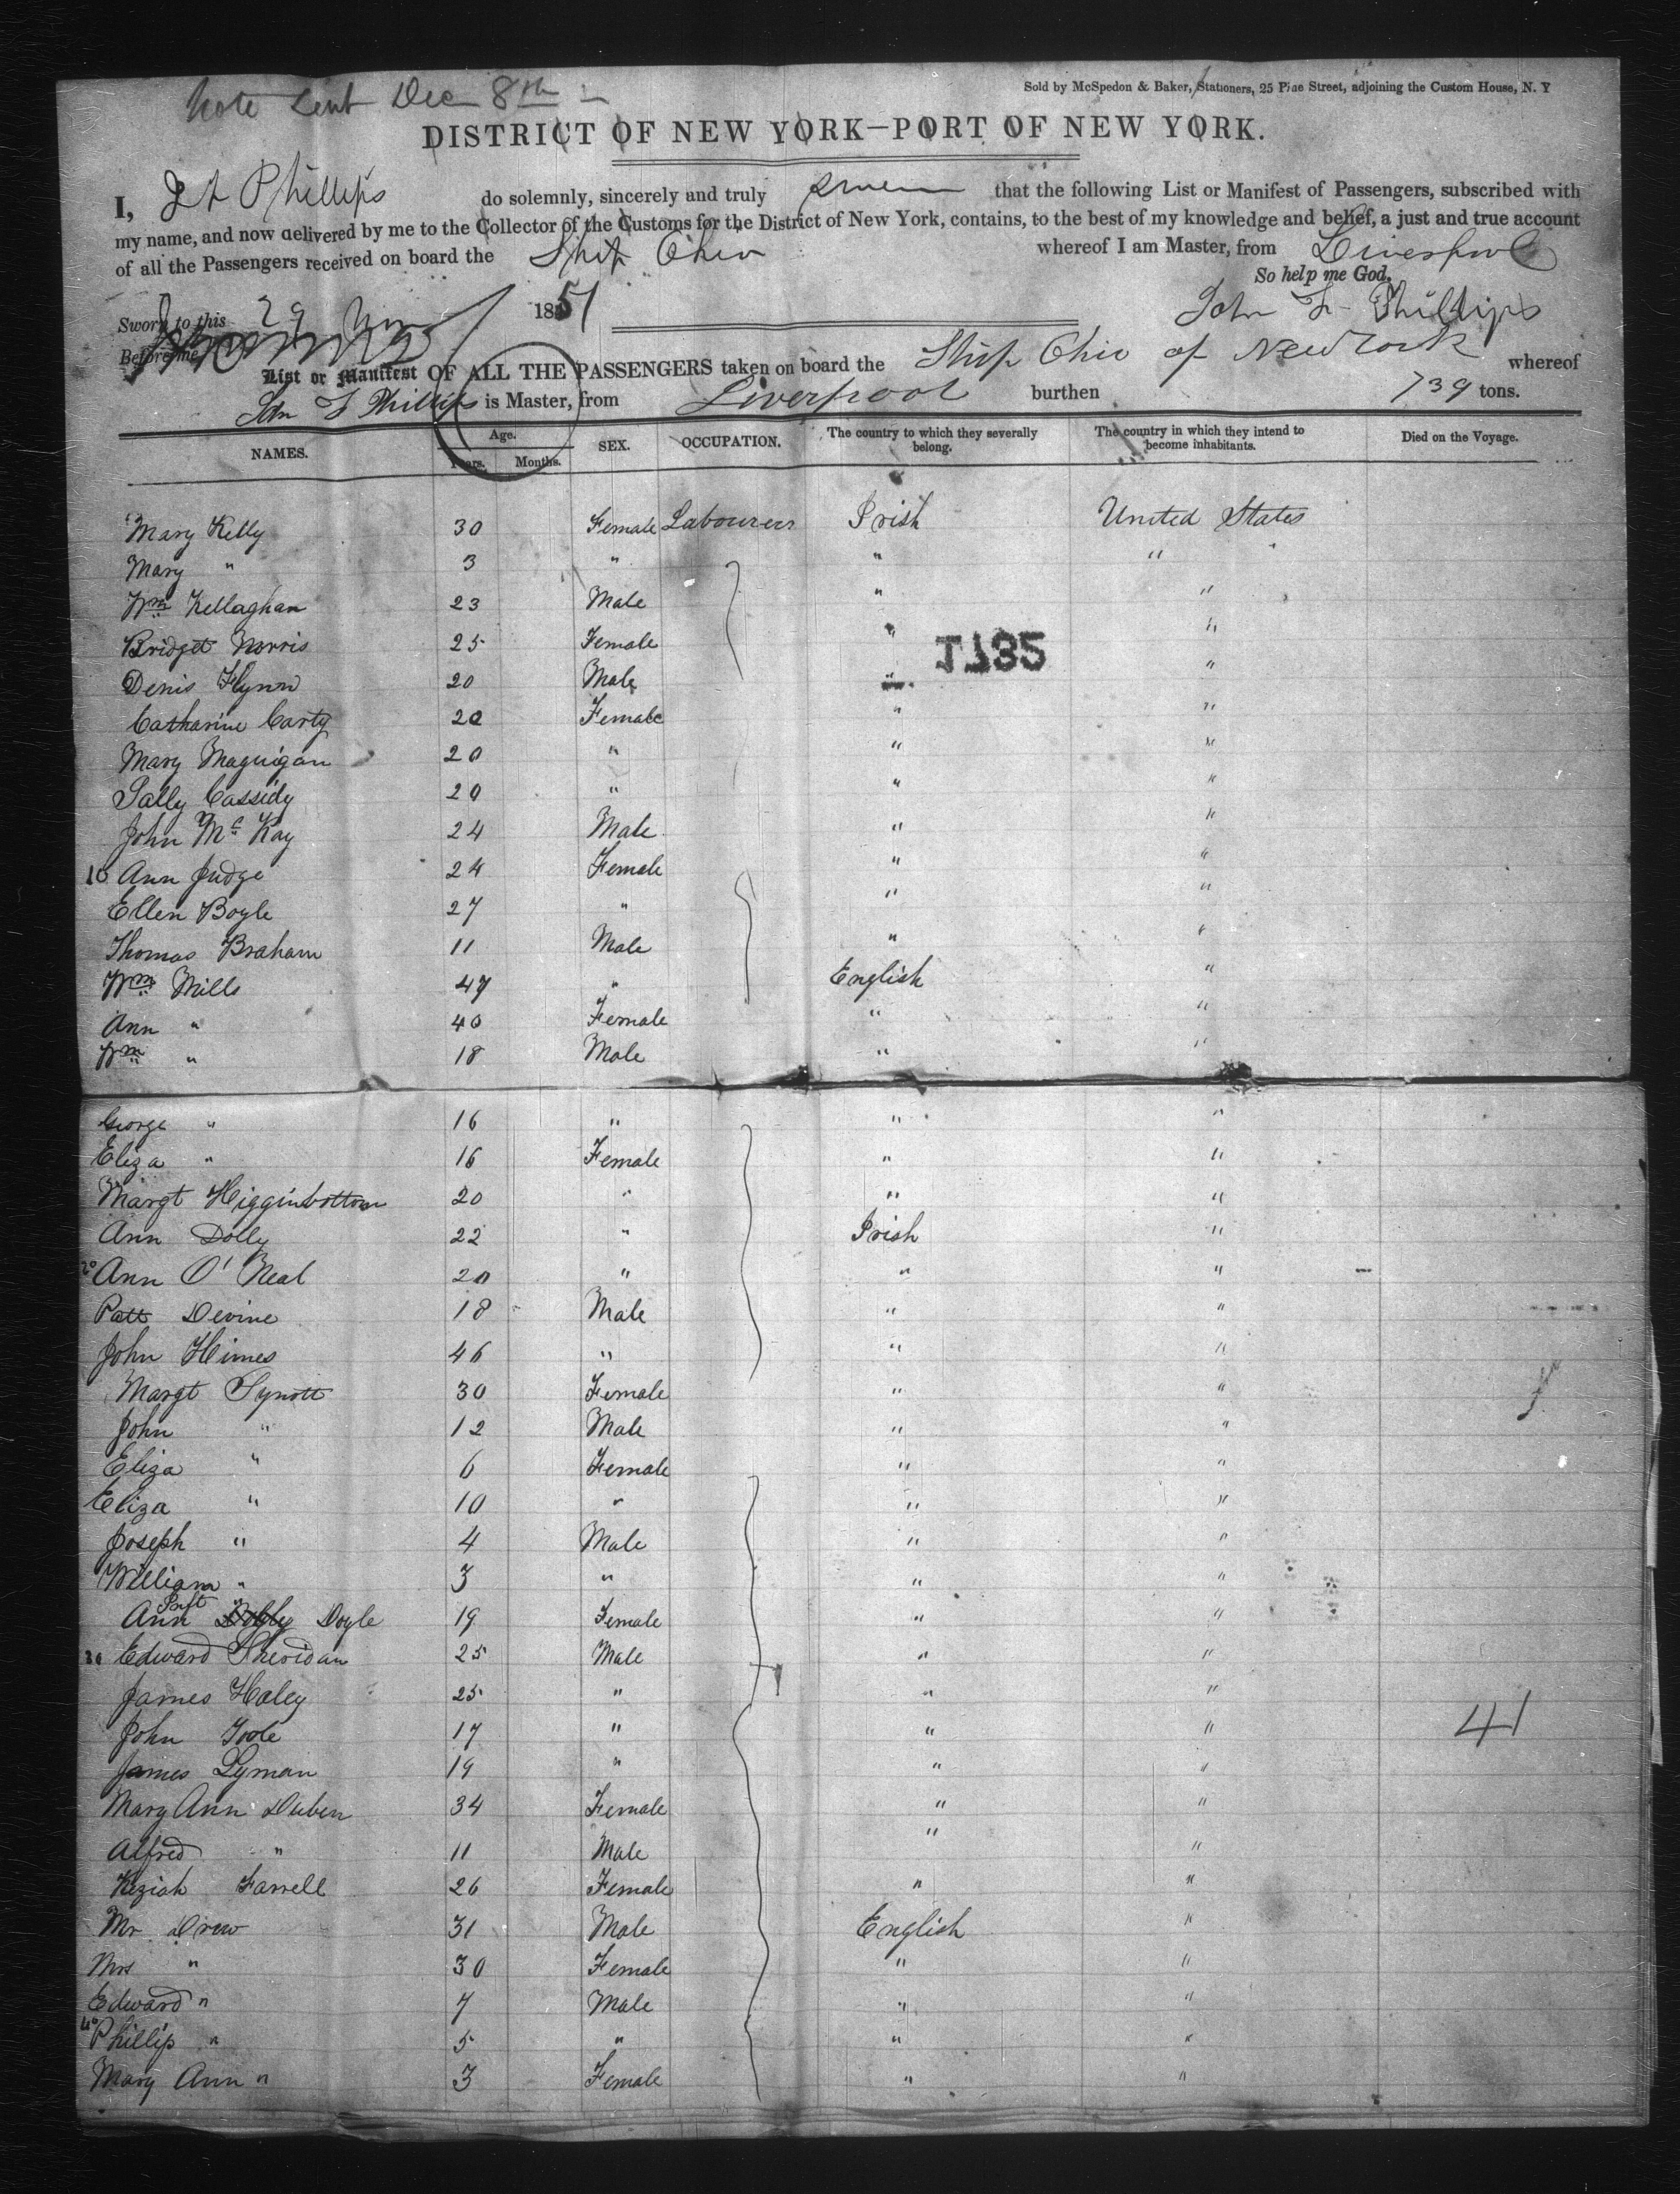 Note Sent Dec 8th
Sold by McSpedon & Baker, Stationers, 25 Pine Street, adjoining the Custom House, N. Y
DISTRICT OF NEW YORK—PORT OF NEW YORK.
I, Phillips do solemnly, sincerely and truly swear that the following List or Manifest of Passengers, subscribed with
my name, and now delivered by me to the Collector of the Customs for the District of New York, contains, to the best of my knowledge and belief, a just and true account
of all the Passengers received on board the Ship Ohio whereof I am Master, from Liverpool
So help me God.
Sworn to this 29 1851
John Phillips
Before me
List or Manifest OF ALL THE PASSENGERS taken on board the Ship Ohio of New York whereof
Phillips is Master, from Liverpool burthen 739 tons.
NAMES. Age. Years. Months. SEX. OCCUPATION. The country to which they severally belong. The country in which they intend to become inhabitants. Died on the Voyage.
Mary Kelly 30 Female Labourers Irish United States
Mary " 3 " " "
Wm Kellaghan 23 Male " "
Bridget Norris 25 Female " "
Denis Flynn 20 Male " "
Catharine Carty 20 Female " "
Mary Maguigan 20 " " "
Sally Cassidy 20 " " "
John Mc Kay 24 Male " "
10 Ann Judge 24 Female " "
Ellen Boyle 27 " " "
Thomas Braham 11 Male " "
Wm Mills 47 " English "
Ann " 40 Female " "
Wm " 18 Male " "
George " 16 " " "
Eliza " 16 Female " "
Margt Higginbottom 20 " " "
Ann Dolly 22 " Irish "
20 Ann O'Neal 20 " " "
Patt Devine 18 Male " "
John Himes 46 " " "
Margt Synott 30 Female " "
John " 12 Male " "
Eliza " 6 Female " "
Eliza " 10 " " "
Joseph " 4 Male " "
William " 3 " " "
Ann Doyle 19 Female " "
30 Edward Sheridan 25 Male " "
James Haley 25 " " "
John Toole 17 " " " 41
James Lyman 19 " " "
Mary Ann Duben 34 Female " "
Alfred " 11 Male " "
Keziah Farrell 26 Female " "
Mr Drew 31 Male English "
Mrs " 30 Female " "
Edward " 7 Male " "
40 Phillip " 5 " " "
Mary Ann " 3 Female " "